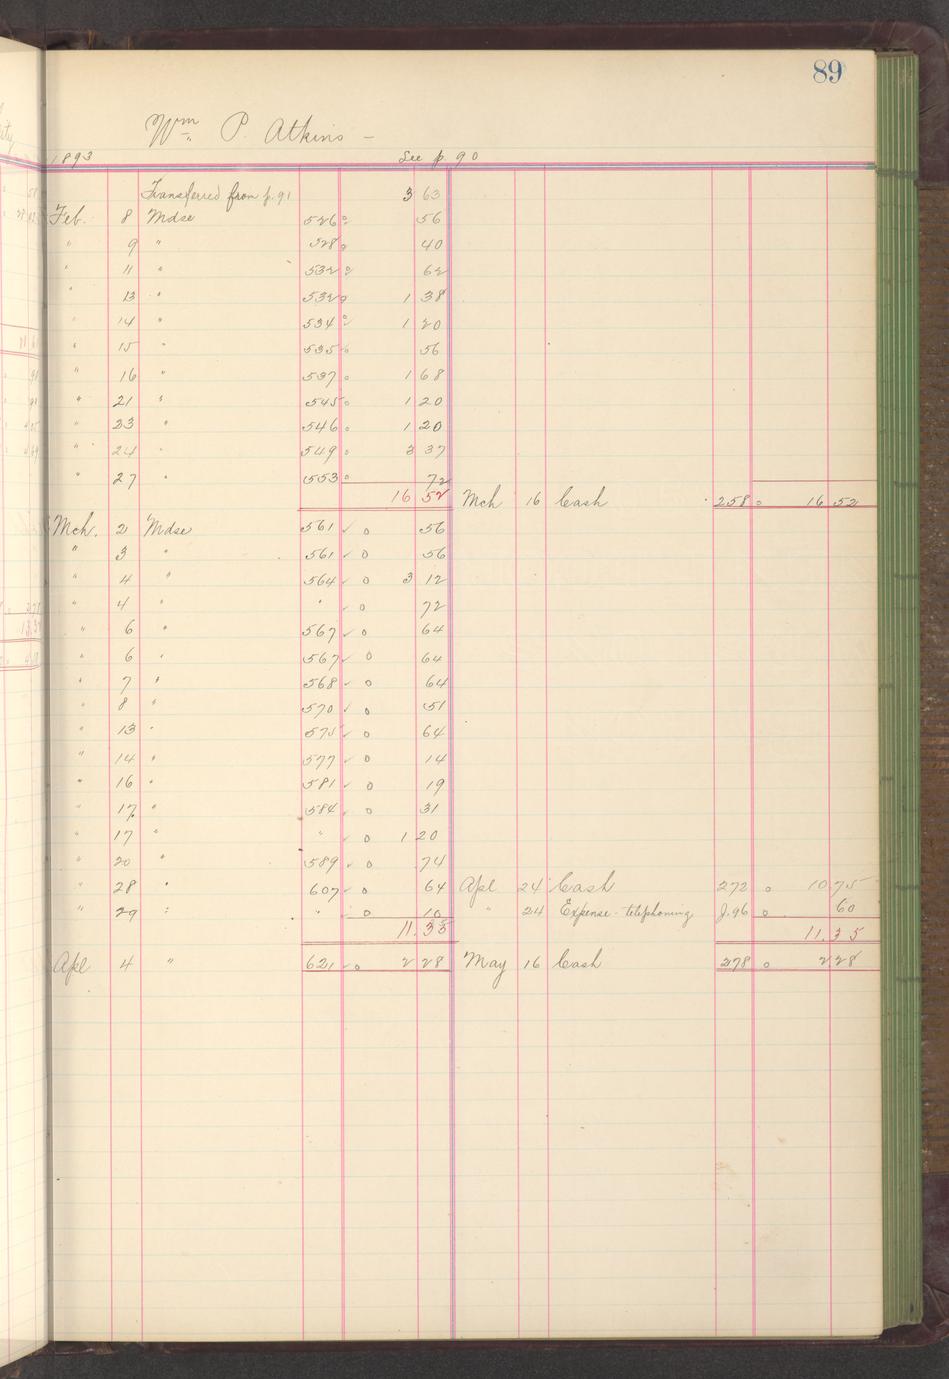 89
Wm P. Atkins —
1893 See p. 90
Transferred from p. 91 3 63
Feb. 8 Mdse 526 o 56
" 9 " 528 o 40
" 11 " 532 o 62
" 13 " 532 o 1 38
" 14 " 534 o 1 20
" 15 " 535 o 56
" 16 " 537 o 1 68
" 21 " 545 o 1 20
" 23 " 546 o 1 20
" 24 " 549 o 3 37
" 27 " 553 o 72
16 52 Mch 16 Cash 258 o 16 52
Mch. 2 Mdse 561 ✓ o 56
" 3 " 561 ✓ o 56
" 4 " 564 ✓ o 3 12
" 4 " " ✓ o 72
" 6 " 567 ✓ o 64
" 6 " 567 ✓ o 64
" 7 " 568 ✓ o 64
" 8 " 570 ✓ o 51
" 13 " 575 ✓ o 64
" 14 " 577 ✓ o 14
" 16 " 581 ✓ o 19
" 17 " 584 ✓ o 31
" 17 " " ✓ o 1 20
" 20 " 589 ✓ o 74
" 28 " 607 ✓ o 64 Apl 24 Cash 272 o 10 75
" 29 " " ✓ o 10 " 24 Expense - telephoning J. 96 o 60
11.35 11.35
Apl 4 " 621 ✓ o 2 28 May 16 Cash 278 o 2 28